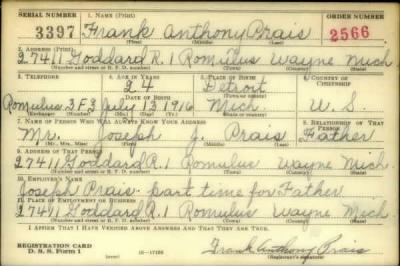 SERIAL NUMBER 1. NAME (Print) ORDER NUMBER
3397 Frank Anthony Prais 2566
(First) (Middle) (Last)
2. ADDRESS (Print)
27411 Goddard R. 1 Romulus Wayne Mich
(Number and street or R. F. D. number) (Town) (County) (State)
3. TELEPHONE 4. AGE IN YEARS 5. PLACE OF BIRTH 6. COUNTRY OF CITIZENSHIP
24 Detroit
DATE OF BIRTH
Romulus 3F3 July 13 1916 Mich. U. S.
(Exchange) (Number) (Mo.) (Day) (Yr.)
7. NAME OF PERSON WHO WILL ALWAYS KNOW YOUR ADDRESS 8. RELATIONSHIP OF THAT PERSON
Mr. Joseph J. Prais Father
(Mr., Mrs., Miss) (First) (Middle) (Last)
9. ADDRESS OF THAT PERSON
27411 Goddard R. 1 Romulus Wayne Mich
(Number and street or R. F. D. number) (Town) (County) (State)
10. EMPLOYER'S NAME
Joseph Prais - part time for Father
11. PLACE OF EMPLOYMENT OR BUSINESS
27411 Goddard R. 1 Romulus Wayne, Mich
(Number and street or R. F. D. number) (Town) (County) (State)
I AFFIRM THAT I HAVE VERIFIED ABOVE ANSWERS AND THAT THEY ARE TRUE.
REGISTRATION CARD
D. S. S. Form 1
Frank Anthony Prais